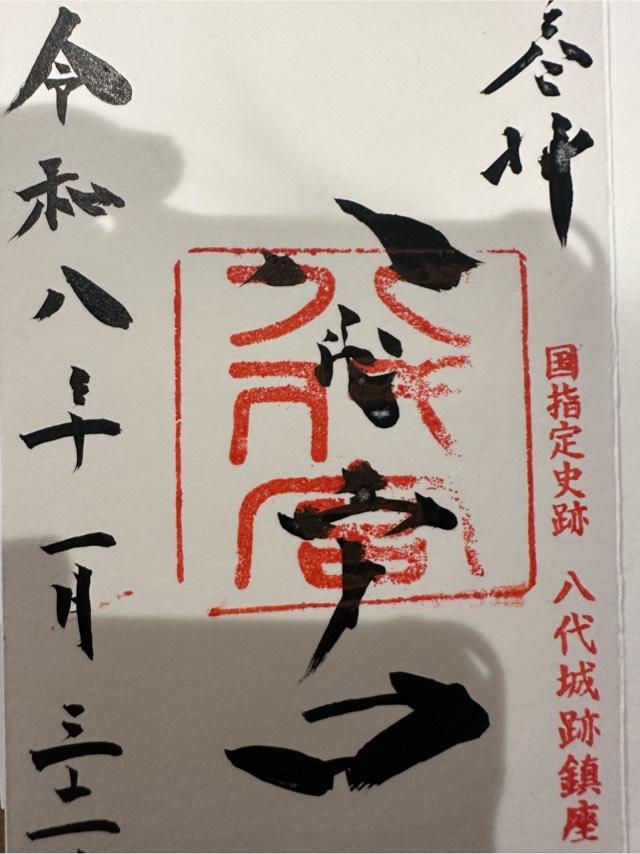 奉拝
国指定史跡 八代城跡鎮座
八代宮
八代宮
令和八年 一月 三十一